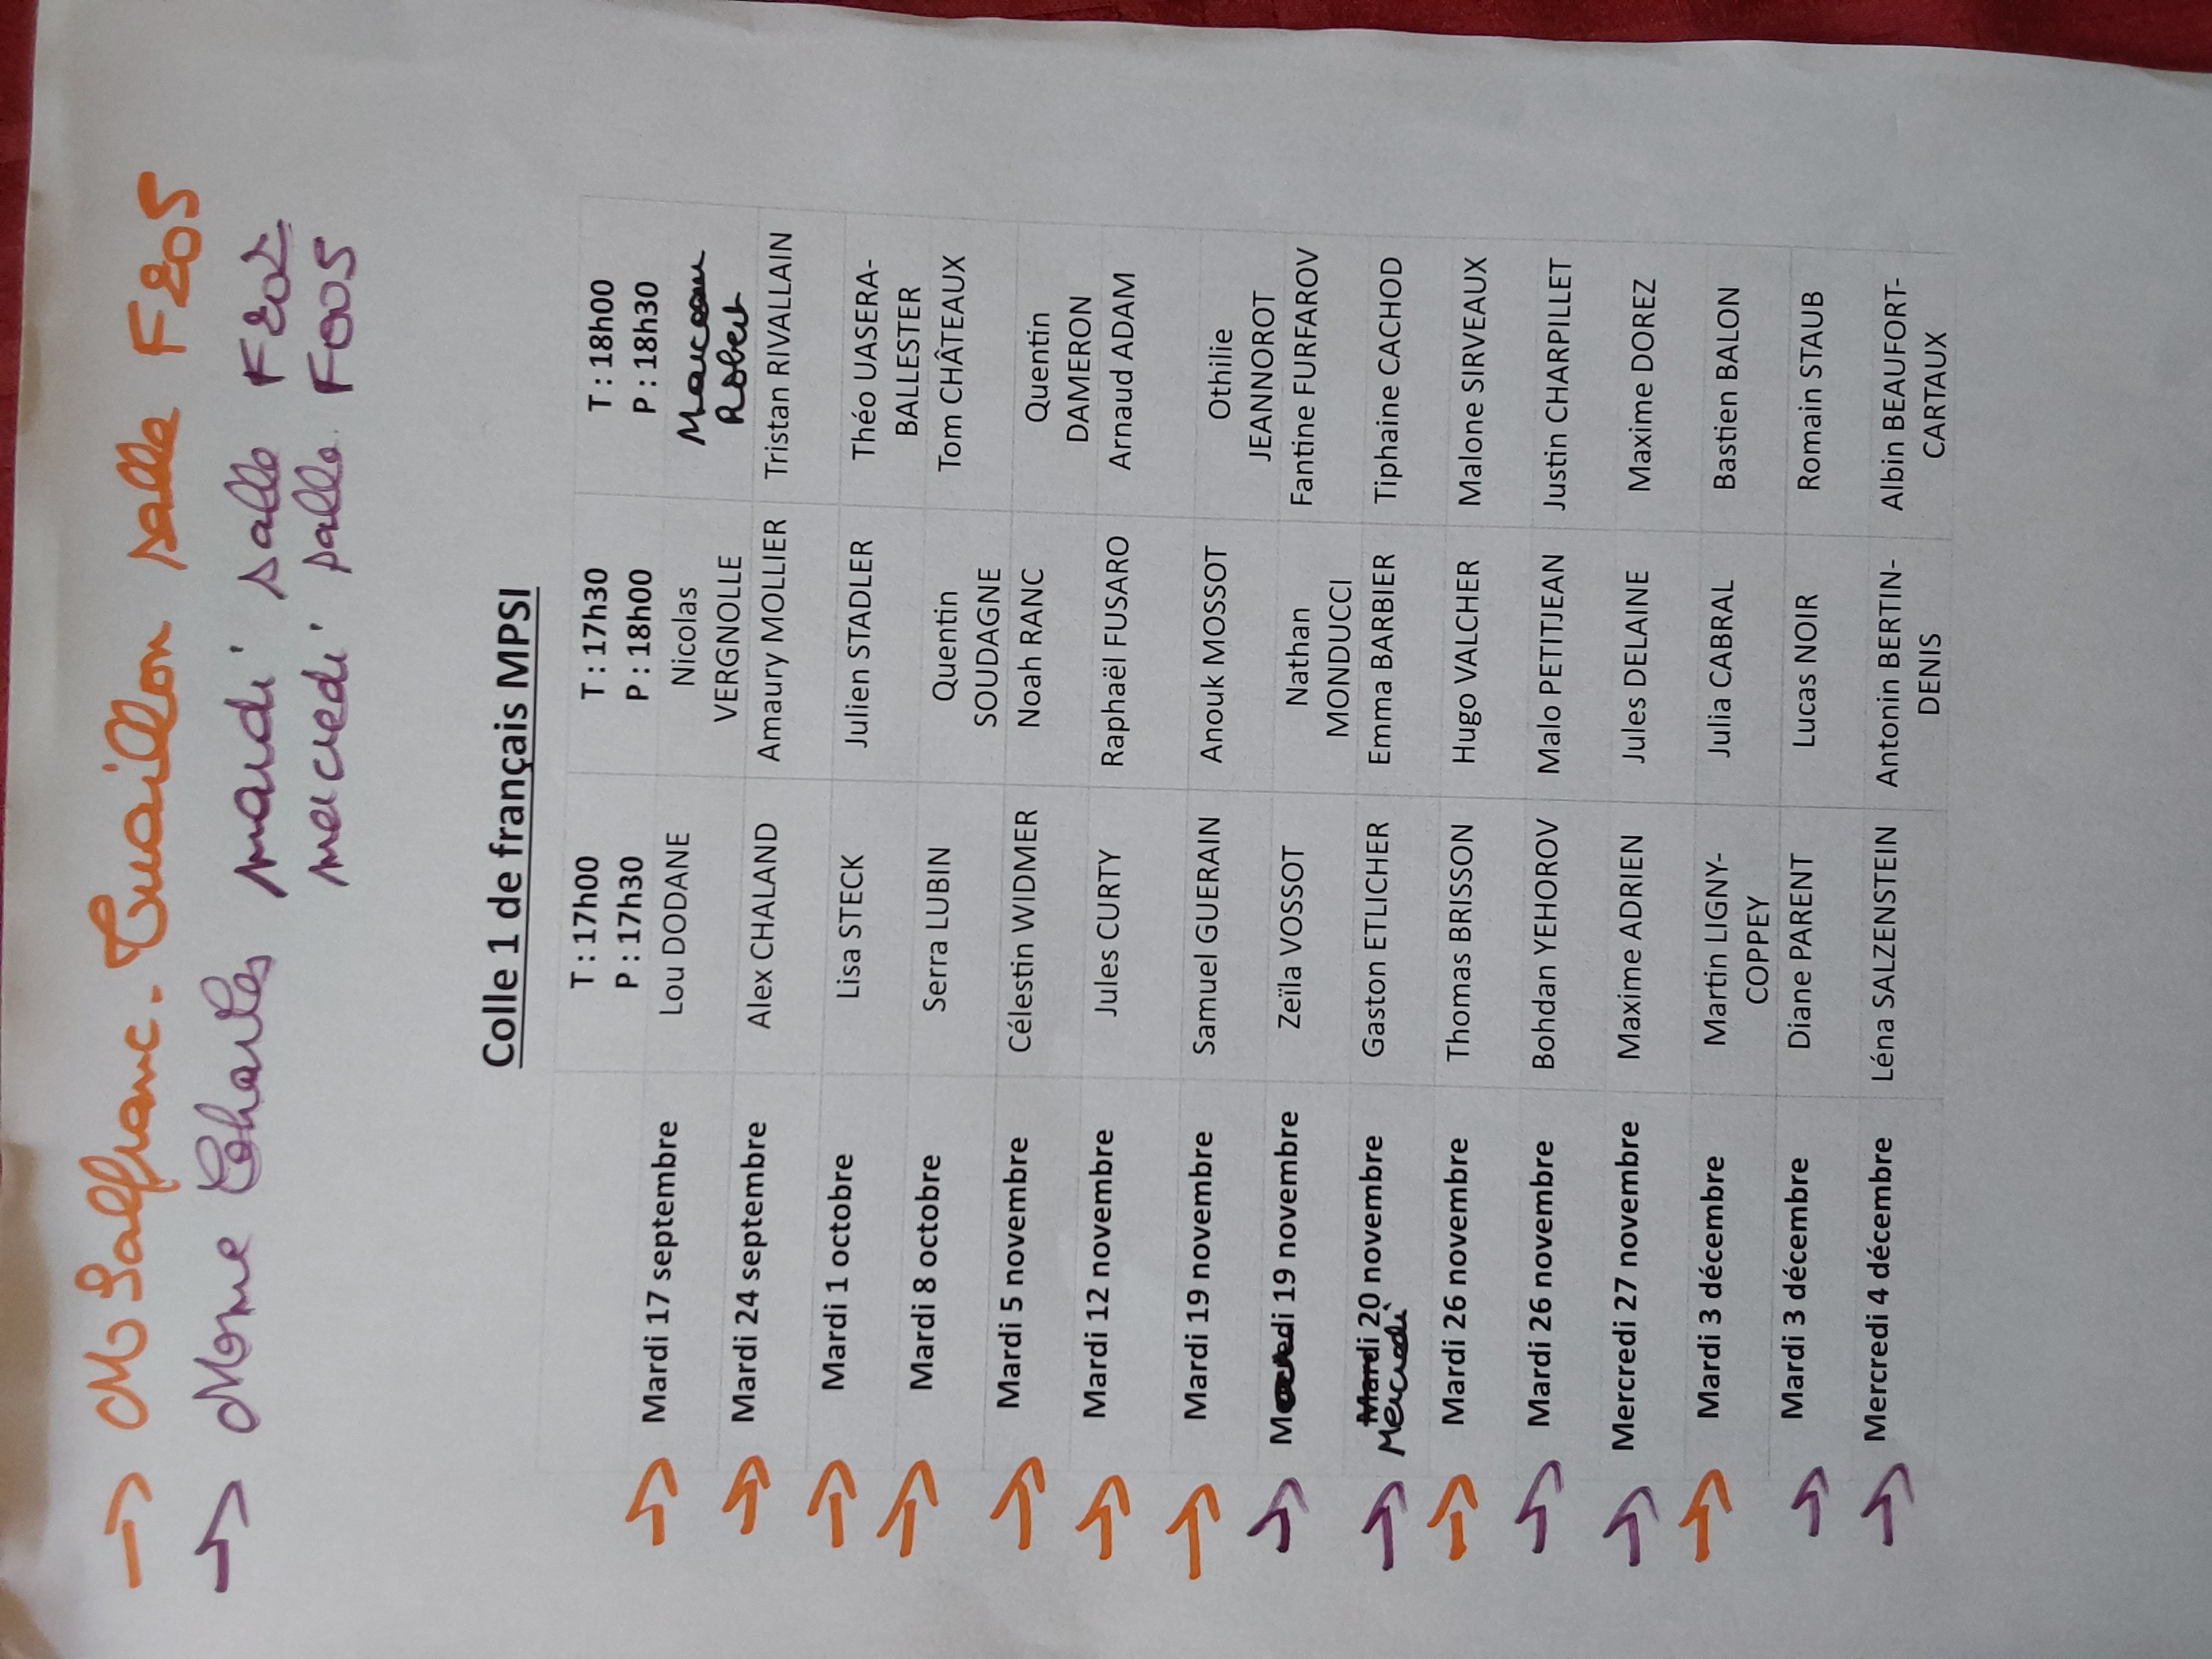 → M Salfranc. Cuaillon salle F205
→ Mme Charles mardi salle F202
mercredi salle F005
Colle 1 de français MPSI
T : 17h00 T : 17h30 T : 18h00
P : 17h30 P : 18h00 P : 18h30
→ Mardi 17 septembre Lou DODANE Nicolas VERGNOLLE Robert
→ Mardi 24 septembre Alex CHALAND Amaury MOLLIER Tristan RIVALLAIN
→ Mardi 1 octobre Lisa STECK Julien STADLER Théo UASERA-BALLESTER
→ Mardi 8 octobre Serra LUBIN Quentin SOUDAGNE Tom CHÂTEAUX
→ Mardi 5 novembre Célestin WIDMER Noah RANC Quentin DAMERON
→ Mardi 12 novembre Jules CURTY Raphaël FUSARO Arnaud ADAM
→ Mardi 19 novembre Samuel GUERAIN Anouk MOSSOT Othilie JEANNOROT
→ 19 novembre Zeïla VOSSOT Nathan MONDUCCI Fantine FURFAROV
→ Mardi 20 novembre Gaston ETLICHER Emma BARBIER Tiphaine CACHOD
Mercredi
→ Mardi 26 novembre Thomas BRISSON Hugo VALCHER Malone SIRVEAUX
→ Mardi 26 novembre Bohdan YEHOROV Malo PETITJEAN Justin CHARPILLET
→ Mercredi 27 novembre Maxime ADRIEN Jules DELAINE Maxime DOREZ
→ Mardi 3 décembre Martin LIGNY-COPPEY Julia CABRAL Bastien BALON
→ Mardi 3 décembre Diane PARENT Lucas NOIR Romain STAUB
→ Mercredi 4 décembre Léna SALZENSTEIN Antonin BERTIN-DENIS Albin BEAUFORT-CARTAUX